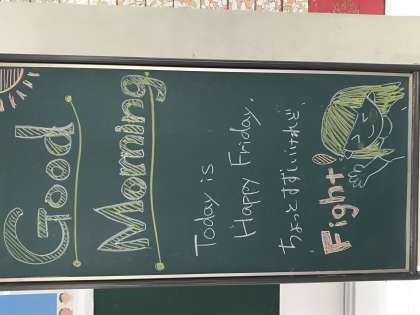 Good
Morning
Today is
Happy Friday.
ちょっとすずしいけれど
Fight